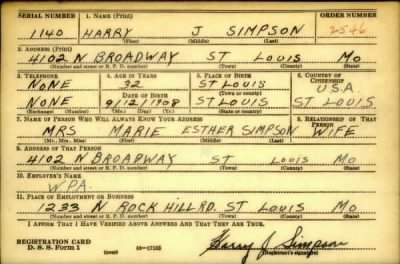 SERIAL NUMBER 1. NAME (Print) ORDER NUMBER
1140 HARRY J SIMPSON 2546
(First) (Middle) (Last)
2. ADDRESS (Print)
4102 N BROADWAY ST LOUIS MO
(Number and street or R. F. D. number) (Town) (County) (State)
3. TELEPHONE 4. AGE IN YEARS 5. PLACE OF BIRTH 6. COUNTRY OF CITIZENSHIP
NONE 32 ST LOUIS U.S.A.
DATE OF BIRTH (Town or county)
NONE 9/12/1908 ST LOUIS ST LOUIS
(Exchange) (Number) (Mo.) (Day) (Yr.) (State or country)
7. NAME OF PERSON WHO WILL ALWAYS KNOW YOUR ADDRESS 8. RELATIONSHIP OF THAT PERSON
MRS MARIE ESTHER SIMPSON WIFE
(Mr., Mrs., Miss) (First) (Middle) (Last)
9. ADDRESS OF THAT PERSON
4102 N BROADWAY ST LOUIS MO
(Number and street or R. F. D. number) (Town) (County) (State)
10. EMPLOYER'S NAME
W.P.A.
11. PLACE OF EMPLOYMENT OR BUSINESS
1233 N ROCK HILL RD. ST LOUIS MO
(Number and street or R. F. D. number) (Town) (County) (State)
I AFFIRM THAT I HAVE VERIFIED ABOVE ANSWERS AND THAT THEY ARE TRUE.
REGISTRATION CARD
D. S. S. Form 1 (over) 16-17105 Harry J Simpson
(Registrant's signature)